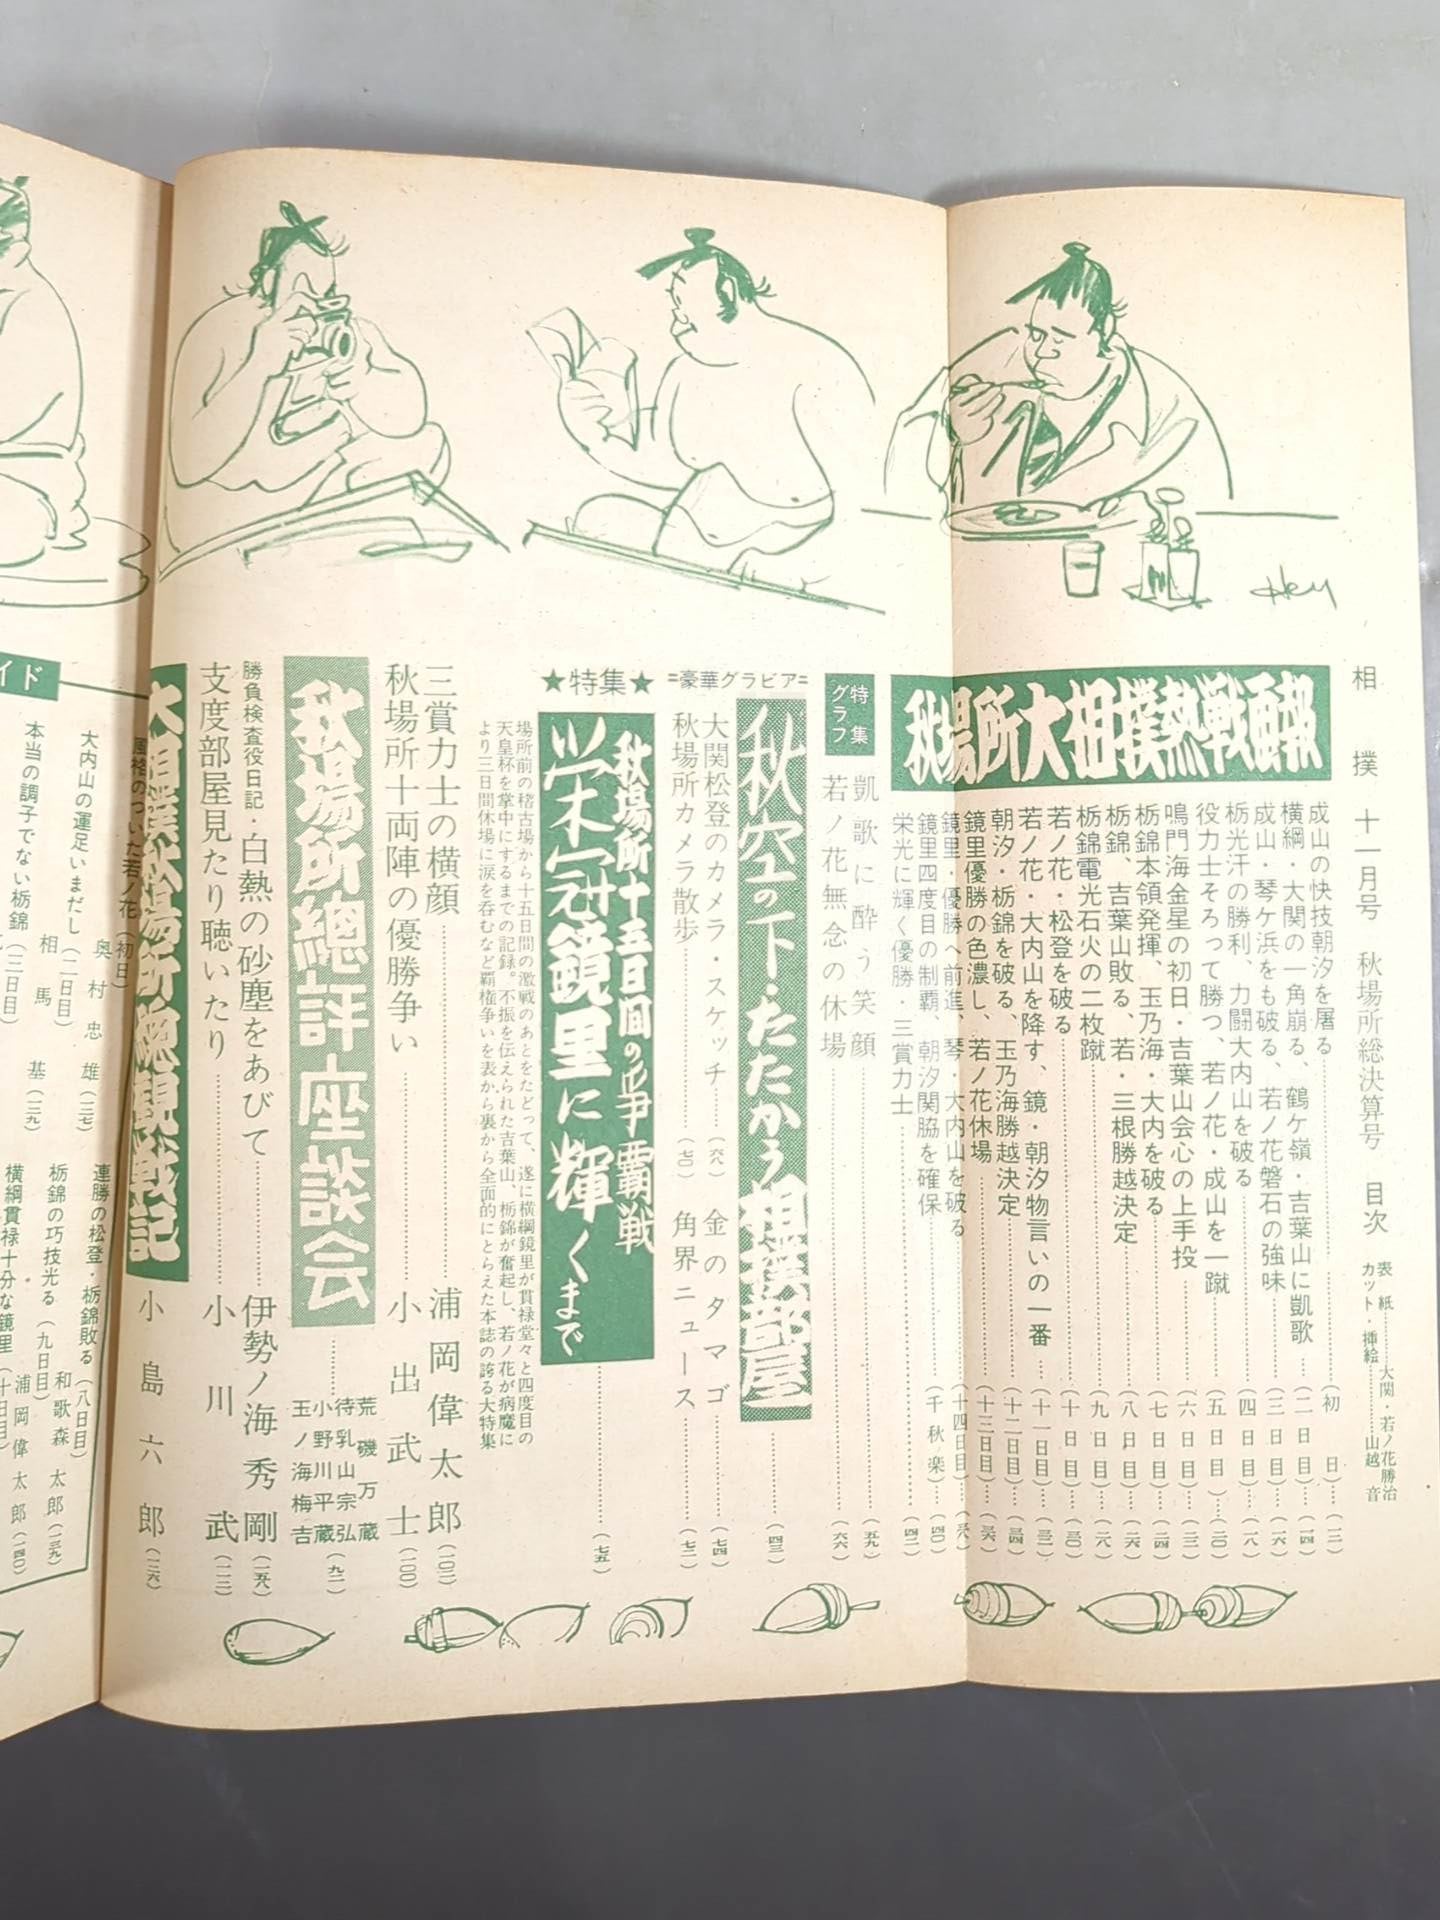 相撲 十一月号 秋場所総決算号 目次
表紙……大関・若ノ花勝治
カット・挿絵……山越音
秋場所大相撲熱戦画報
成山の快技朝汐を屠る……(初日)……(一二)
横綱・大関の一角崩る、鶴ケ嶺・吉葉山に凱歌……(二日目)……(一四)
成山・琴ケ浜をも破る、若ノ花磐石の強味……(三日目)……(一六)
栃光汗の勝利、力闘大内山を破る……(四日目)……(一八)
役力士そろって勝つ、若ノ花・成山を一蹴……(五日目)……(二〇)
鳴門海金星の初日・吉葉山会心の上手投……(六日目)……(二二)
栃錦本領発揮、玉乃海・大内を破る……(七日目)……(二四)
栃錦、吉葉山敗る、若・三根勝越決定……(八日目)……(二六)
栃錦電光石火の二枚蹴……(九日目)……(二八)
若ノ花・松登を破る……(十日目)……(三〇)
若ノ花・大内山を降す、鏡・朝汐物言いの一番……(十一日目)……(三二)
朝汐・栃錦を破る、玉乃海勝越決定……(十二日目)……(三四)
鏡里優勝の色濃し、若ノ花休場……(十三日目)……(三六)
鏡里・優勝へ前進、琴・大内山を破る……(十四日目)……(三八)
鏡里四度目の制覇、朝汐関脇を確保……(千秋楽)……(四〇)
栄光に輝く優勝・三賞力士……(四二)
特集グラフ
凱歌に酔う笑顔……(五九)
若ノ花無念の休場……(六六)
秋空の下・たたかう相撲部屋……(四三)
=豪華グラビア=
大関松登のカメラ・スケッチ……(六八) 金のタマゴ……(七四)
秋場所カメラ散歩……(七〇) 角界ニュース……(七二)
★特集★
秋場所十五日間の争覇戦
栄冠鏡里に輝くまで……(七五)
場所前の稽古場から十五日間の激戦のあとをたどって、遂に横綱鏡里が貫禄堂々と四度目の
天皇杯を掌中にするまでの記録。不振を伝えられた吉葉山、栃錦が奮起し、若ノ花が病魔に
より三日間休場に涙を呑むなど覇権争いを表から裏から全面的にとらえた本誌の誇る大特集
三賞力士の横顔……浦岡偉太郎(一〇二)
秋場所十両陣の優勝争い……小出武士(一〇〇)
秋場所總評座談会……荒磯万蔵
待乳山宗弘
小野川平蔵
玉ノ海梅吉(九二)
勝負検査役日記・白熱の砂塵をあびて……伊勢ノ海秀剛(一五八)
支度部屋見たり聴いたり……小川武(一二二)
大相撲秋場所総観戦記 小島六郎(一二六)
イド
風格のついた若ノ花(初日)
奥村忠雄(一二七)
大内山の運足いまだし(二日目)
相馬基(一二九)
本当の調子でない栃錦(三日目)
連勝の松登・栃錦敗る(八日目)
和歌森太郎(一三九)
栃錦の巧技光る(九日目)
浦岡偉太郎(一四〇)
横綱貫禄十分な鏡里(十日目)